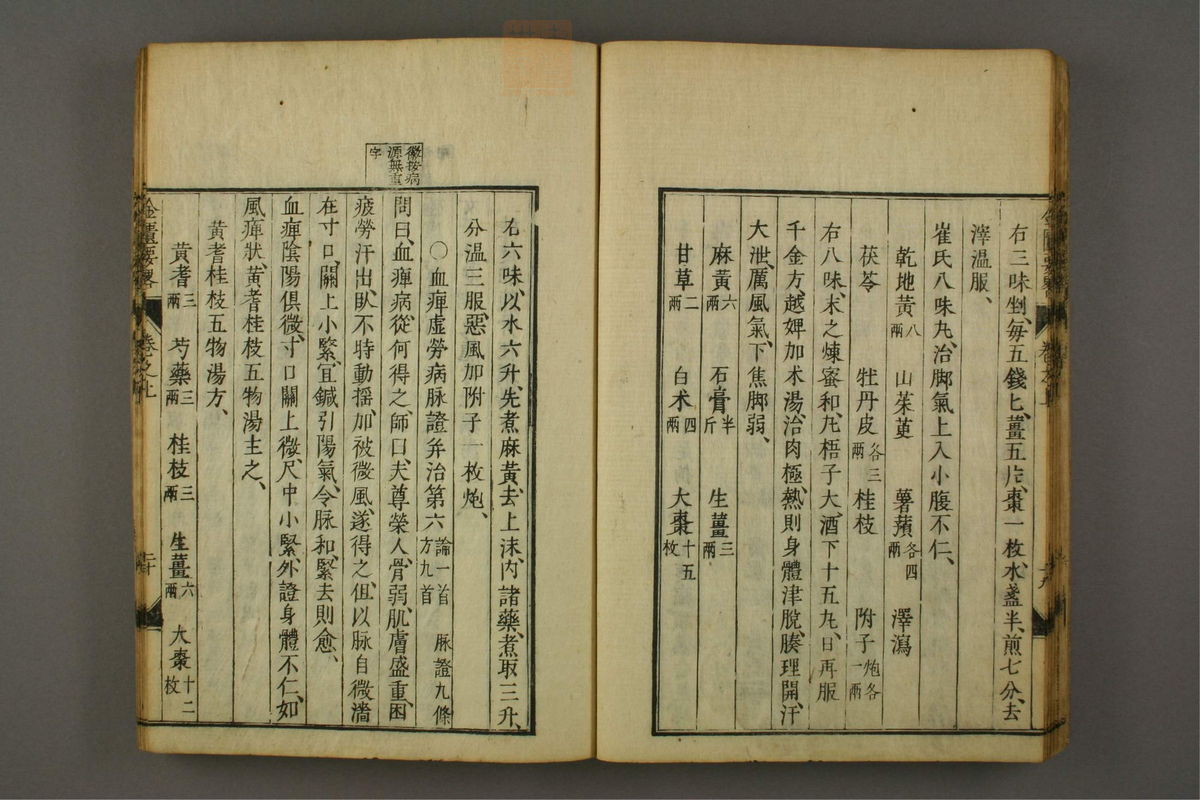 右三味剉、每五錢匕、薑五片、棗一枚、水盞半、煎七分、去
滓温服、
崔氏八味丸、治脚氣上入小腹不仁、
乾地黃八兩 山茱萸 薯蕷各四兩 澤瀉
茯苓 牡丹皮各三兩 桂枝 附子炮各一兩
右八味、末之、煉蜜和丸、梧子大、酒下十五丸、日再服
千金方、越婢加朮湯、治肉極、熱則身體津脫、腠理開、汗
大泄、厲風氣、下焦脚弱、
麻黃六兩 石膏半斤 生薑三兩
甘草二兩 白朮四兩 大棗十五枚
右六味、以水六升、先煮麻黃、去上沫、內諸藥、煮取三升、
分温三服、惡風加附子一枚炮、
○血痺虛勞病脉證并治第六 論一首 脉證九條 方九首
徽按病源無重字
問曰、血痺病從何得之、師曰、夫尊榮人、骨弱、肌膚盛重、因
疲勞汗出、臥不時動搖、加被微風、遂得之、但以脉自微濇
在寸口、關上小緊、宜鍼引陽氣、令脉和、緊去則愈、
血痺陰陽俱微、寸口關上微、尺中小緊、外證身體不仁、如
風痺狀、黃耆桂枝五物湯主之、
黃耆桂枝五物湯方、
黃耆三兩 芍藥三兩 桂枝三兩 生薑六兩 大棗十二枚
金匱要略 卷之上 二十